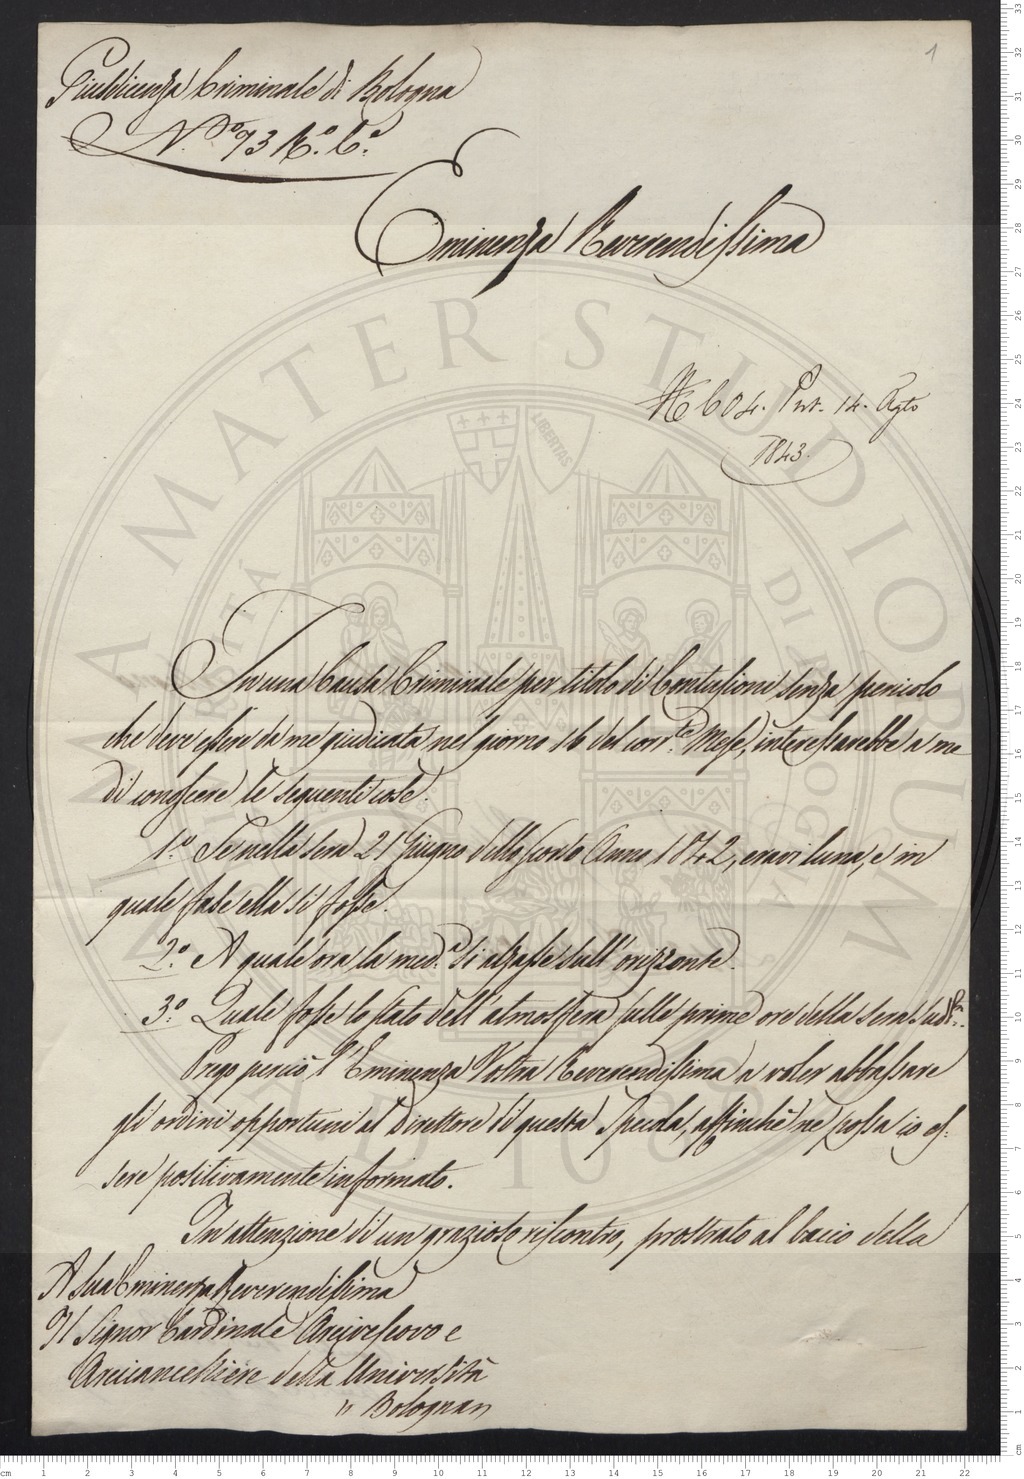 1
Giudicenza Criminale di Bologna
N.° 73 R.° C.e
Eminenza Reverendissima
N 604. Prot. 14. Agto
1843.
In una Causa Criminale per titolo di Contusione senza pericolo
che deve essere da me giudicata nel giorno 16 del corr.te Mese, interessarebbe a me
di conoscere le seguenti cose.
1.° Se nella sera 21 Giugno dello scorso Anno 1842, eravi luna, e in
quale fase ella si fosse.
2.° A quale ora la med.a si alzasse dall' orizzonte.
3.° Quale fosse lo stato dell' atmosfera sulle prime ore della sera sudd.a.
Prego perciò l' Eminenza Vostra Reverendissima a voler abbassare
gli ordini opportuni al Direttore di questa Specola, affinchè ne possa io es-
sere positivamente informato.
In attenzione di un grazioso riscontro, prostrato al bacio della
A Sua Eminenza Reverendissima
Il Signor Cardinale Arcivescovo e
Arcicancelliere della Università
" Bologna"
ALMA MATER STUDIORUM
UNIVERSITÀ DI BOLOGNA
LIBERTAS
A.D. 1088